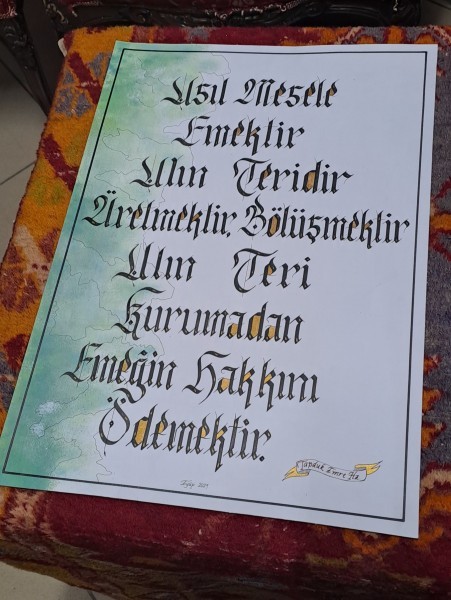 Asıl Mesele
Emektir
Alın Teridir
Üretmektir, Bölüşmektir
Alın Teri
Kurumadan
Emeğin Hakkını
Ödemektir.
Tapduk Emre Hz.